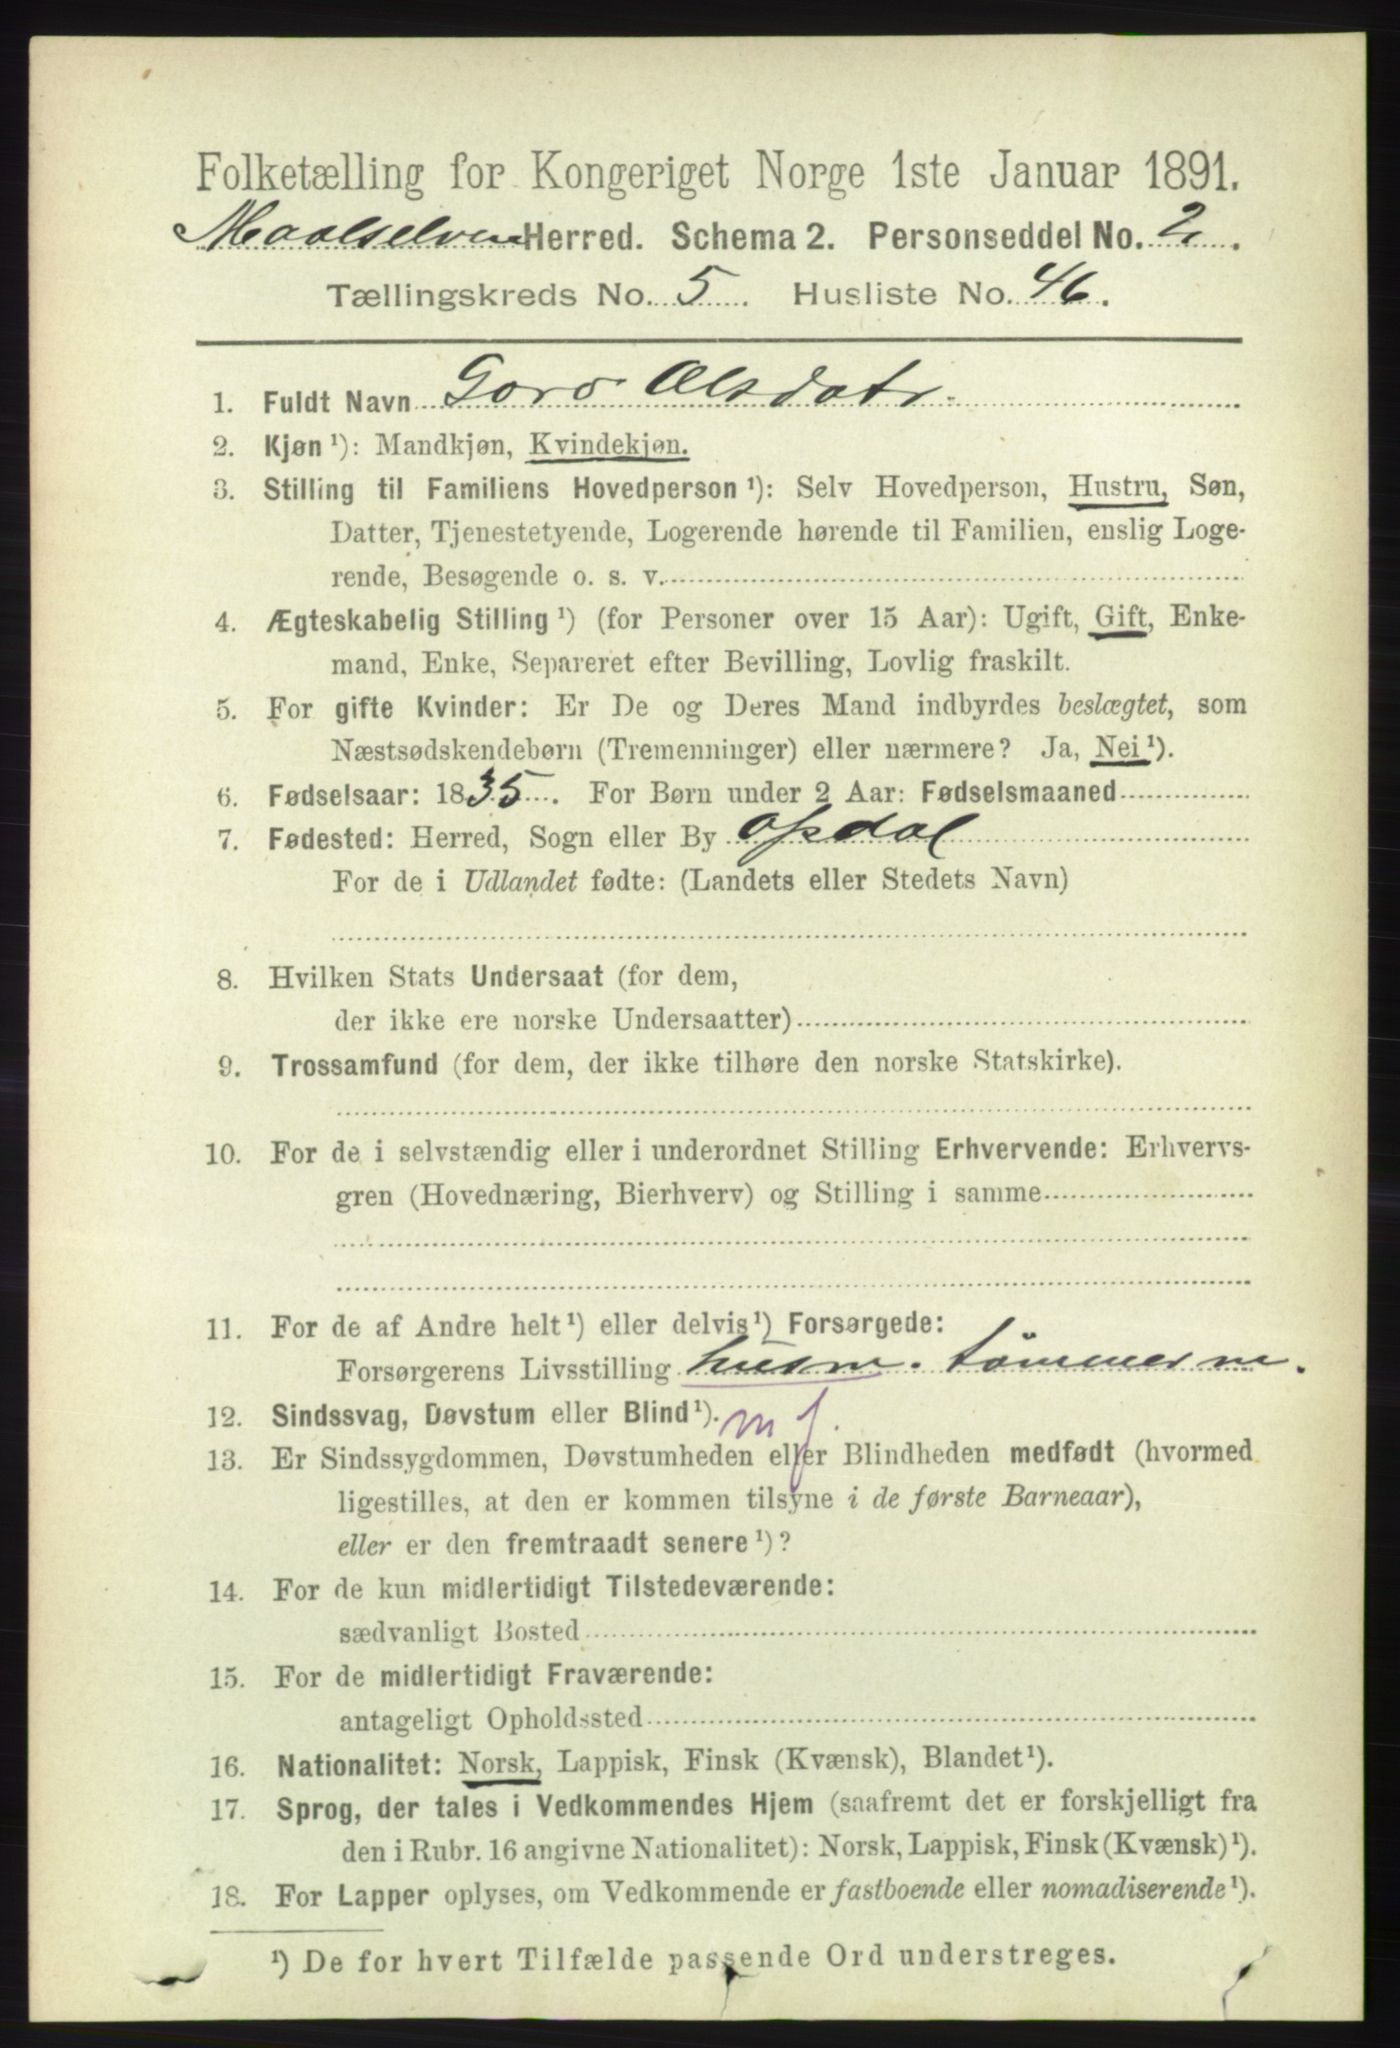 Folketælling for Kongeriget Norge 1ste Januar 1891.
Maalselven Herred. Schema 2. Personseddel No. 2.
Tællingskreds No. 5. Husliste No. 46.
1. Fuldt Navn Goro Olsdatr.
2. Kjøn ¹): Mandkjøn, Kvindekjøn.
3. Stilling til Familiens Hovedperson ¹): Selv Hovedperson, Hustru, Søn,
Datter, Tjenestetyende, Logerende hørende til Familien, enslig Loge-
rende, Besøgende o. s. v.
4. Ægteskabelig Stilling ¹) (for Personer over 15 Aar): Ugift, Gift, Enke-
mand, Enke, Separeret efter Bevilling, Lovlig fraskilt.
5. For gifte Kvinder: Er De og Deres Mand indbyrdes beslægtet, som
Næstsødskendebørn (Tremenninger) eller nærmere? Ja, Nei ¹).
6. Fødselsaar: 1835. For Børn under 2 Aar: Fødselsmaaned
7. Fødested: Herred, Sogn eller By Opdal
For de i Udlandet fødte: (Landets eller Stedets Navn)
8. Hvilken Stats Undersaat (for dem,
der ikke ere norske Undersaatter)
9. Trossamfund (for dem, der ikke tilhøre den norske Statskirke).
10. For de i selvstændig eller i underordnet Stilling Erhvervende: Erhvervs-
gren (Hovednæring, Bierhverv) og Stilling i samme
11. For de af Andre helt ¹) eller delvis ¹) Forsørgede:
Forsørgerens Livsstilling husm. tømmerm.
12. Sindssvag, Døvstum eller Blind ¹). m f.
13. Er Sindssygdommen, Døvstumheden eller Blindheden medfødt (hvormed
ligestilles, at den er kommen tilsyne i de første Barneaar),
eller er den fremtraadt senere ¹)?
14. For de kun midlertidigt Tilstedeværende:
sædvanligt Bosted
15. For de midlertidigt Fraværende:
antageligt Opholdssted
16. Nationalitet: Norsk, Lappisk, Finsk (Kvænsk), Blandet ¹).
17. Sprog, der tales i Vedkommendes Hjem (saafremt det er forskjelligt fra
den i Rubr. 16 angivne Nationalitet): Norsk, Lappisk, Finsk (Kvænsk) ¹).
18. For Lapper oplyses, om Vedkommende er fastboende eller nomadiserende ¹).
¹) De for hvert Tilfælde passende Ord understreges.